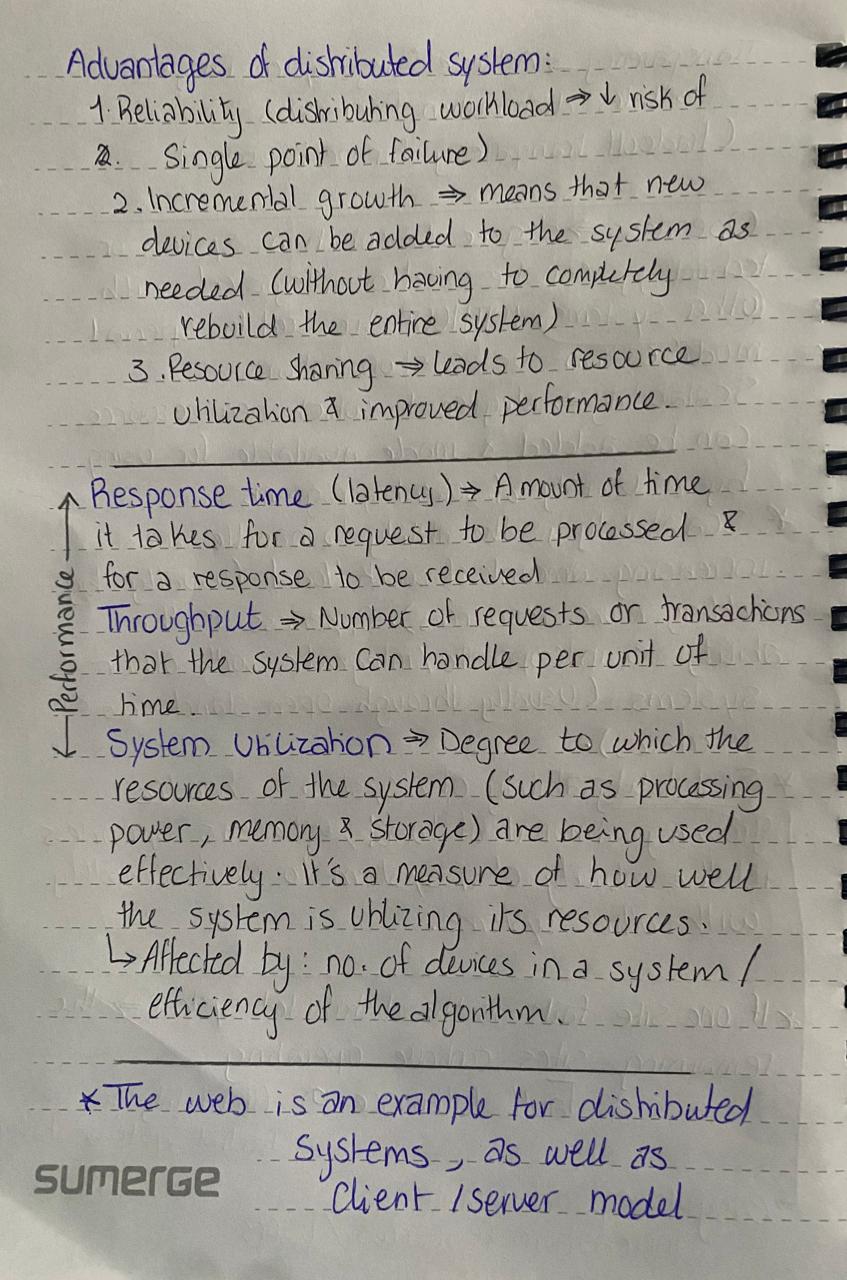 Advantages of distributed system:
1. Reliability (distributing workload ⇒ ↓ risk of
2. Single point of failure)
2. Incremental growth ⇒ means that new
devices can be added to the system as
needed (without having to completely
rebuild the entire system)
3. Resource sharing ⇒ leads to resource
utilization & improved performance.
Response time (latency) ⇒ Amount of time
it takes for a request to be processed &
for a response to be received
Throughput ⇒ Number of requests or transactions
that the system can handle per unit of
time.
← Performance →
System Utilization ⇒ Degree to which the
resources of the system (such as processing
power, memory & storage) are being used
effectively. It's a measure of how well
the system is utilizing its resources.
↳ Affected by: no. of devices in a system /
efficiency of the algorithm.
* The web is an example for distributed
systems, as well as
Client / server model
sumerge